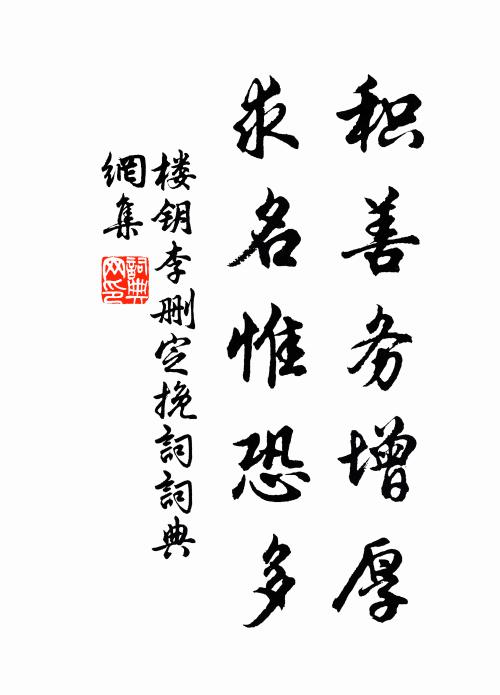 积善务增厚
求名惟恐多
楼钥李删定挽詞詞典
網集
詞典
网印